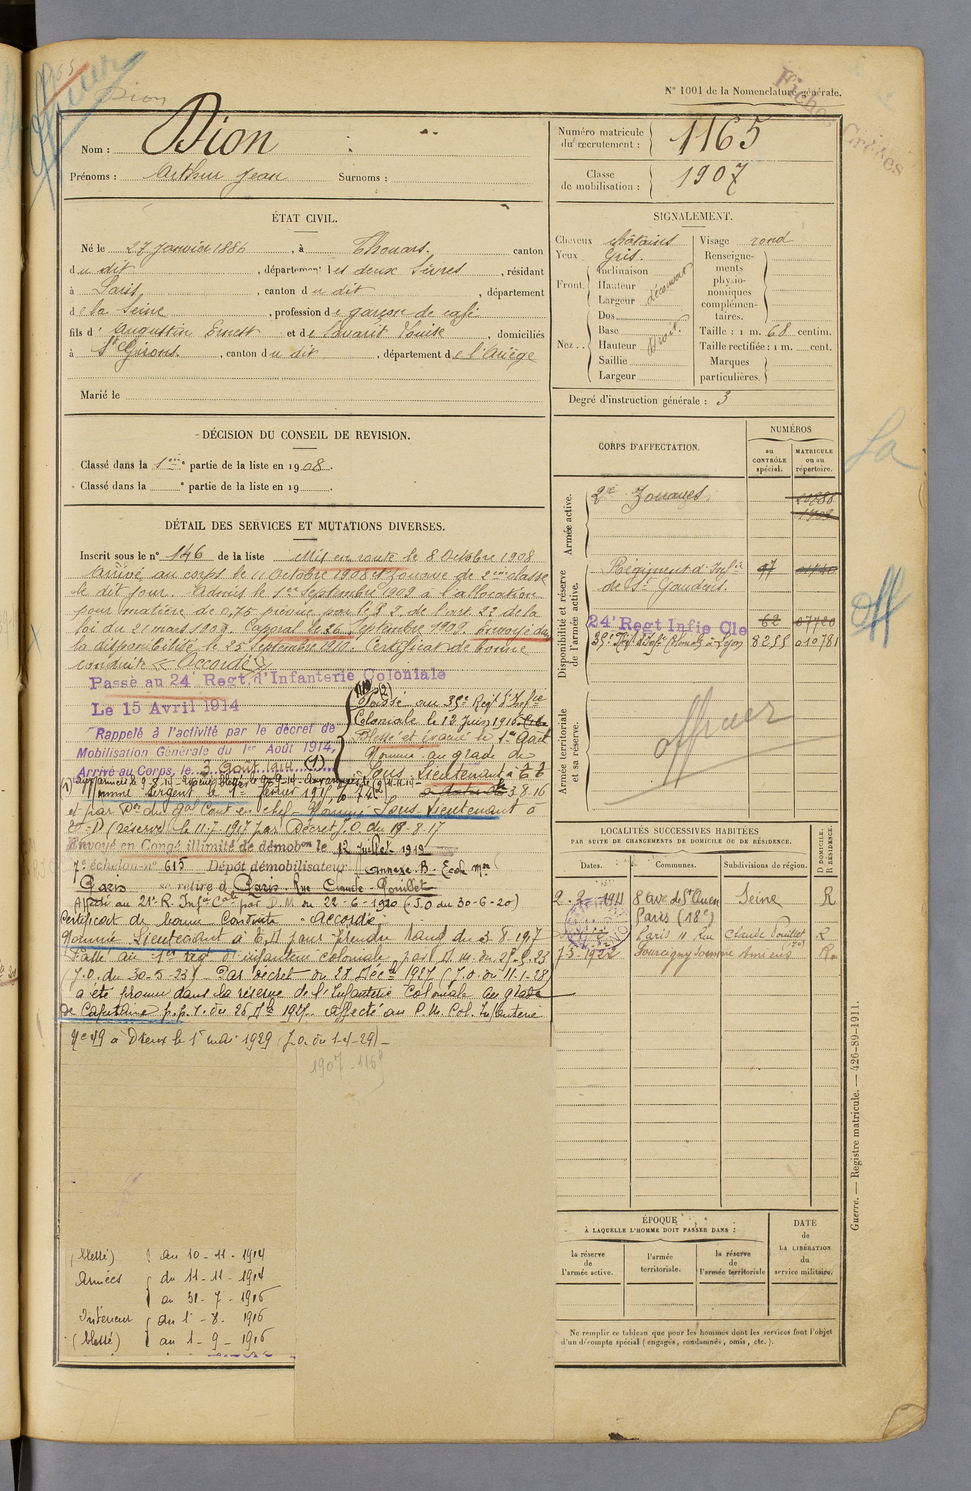 Dion
N° 1001 de la Nomenclature générale.
Fiches Créées
Nom : Dion
Prénoms : Arthur Jean Surnoms :
Numéro matricule du recrutement : 1165
Classe de mobilisation : 1907
ÉTAT CIVIL.
Né le 27 Janvier 1886, à Thouars, canton
du dit, département des deux Sèvres, résidant
à Paris, canton du dit, département
de la Seine, profession de garçon de café
fils d'Augustin Ernest et de Louise, domiciliés
à St Girons, canton du dit, département de l'Ariège
Marié le
SIGNALEMENT.
Cheveux châtains
Yeux Gris.
Front. Inclinaison
Hauteur
Largeur
découvert
Nez. Dos
Base
Hauteur
Saillie
Largeur
Droit
Visage rond
Renseignements physionomiques complémentaires.
Taille : 1 m. 68 centim.
Taille rectifiée : 1 m. cent.
Marques particulières.
Degré d'instruction générale : 3
DÉCISION DU CONSEIL DE REVISION.
Classé dans la 1ère partie de la liste en 1908.
Classé dans la partie de la liste en 19
DÉTAIL DES SERVICES ET MUTATIONS DIVERSES.
Inscrit sous le n° 146 de la liste Mis en route le 8 Octobre 1908
Arrivé au corps le 11 Octobre 1908 et Zouave de 2ème classe
le dit jour. Admis le 1er Septembre 1909 à l'allocation
pour matière de 0,75 prévue par le § 2 de l'art. 22 de la
loi du 21 mars 1905. Caporal le 26 Septembre 1909. Envoyé dans
la disponibilité le 25 Septembre 1910. Certificat de bonne
conduite "Accordé"
Passé au 24e Regt d'Infanterie Coloniale
Le 15 Avril 1914
Rappelé à l'activité par le décret de
Mobilisation Générale du 1er Août 1914,
Arrivé au Corps, le 3 Août 1914 (1)
Passé au 35e Regt d'Infie
Coloniale le 12 Juin 1916
Blessé et évacué le 1er Août
Nommé au grade de
Sous Lieutenant à T.T
3-8-16
Nommé Sergent le 1er Février 1915
et par Don du Gal Cont en chef Nommé Sous Lieutenant à
T.D (réserve) le 11-7-1917 par Décret J.O. du 19-8-17
Envoyé en Congé illimité de démobon le 12 Juillet 1919
7e échelon n° 615 Dépôt démobilisateur Annexe B. Ecole Mre
Paris se retire à Paris Rue Claude Pouillet
Affecté au 21e R. Infie Cale par D.M. du 22-6-1920 (J.O du 30-6-20)
Certificat de bonne Conduite "Accordé"
Nommé Lieutenant à T.D pour prendre rang du 3.8.1917
(J.O. du 30.5.23). Par Décret du 27 Déc 1927 (J.O. du 11-1-28)
a été promu dans la réserve de l'Infanterie Coloniale au grade
de Capitaine p.p.r. du 26 Dbre 1927. Affecté au P.M. Col. Infanterie
n° 49 à Dreux le 1er mai 1929 (J.O. du 1-4-29)
1907 - 1165
(Blessé) au 10-11-1914
Armées du 11-11-1914
au 31-7-1916
Intérieur du 1-8-1916
(Blessé) au 1-9-1916
CORPS D'AFFECTATION.
NUMÉROS
au CONTRÔLE spécial.
MATRICULE ou au répertoire.
Armée active.
2e Zouaves
Disponibilité et réserve de l'armée active.
Régiment d'Infie
de St Gaudens.
97
24e Regt Infie Cle
62
3255
010781
Armée territoriale et sa réserve.
officier
LOCALITÉS SUCCESSIVES HABITÉES
PAR SUITE DE CHANGEMENTS DE DOMICILE OU DE RÉSIDENCE.
Dates.
Communes.
Subdivisions de région.
D DOMICILE. R RÉSIDENCE.
2-2-1911 8 Ave de St Ouen Seine R
Paris (18e)
Paris 11 Rue Claude Pouillet R
7-3-1922
ÉPOQUE
À LAQUELLE L'HOMME DOIT PASSER DANS :
la réserve de l'armée active.
l'armée territoriale.
la réserve de l'armée territoriale
DATE de LA LIBÉRATION du service militaire.
Ne remplir ce tableau que pour les hommes dont les services font l'objet
d'un décompte spécial (engagés, condamnés, omis, etc.).
Guerre. — Registre matricule. — 426-89-1911.